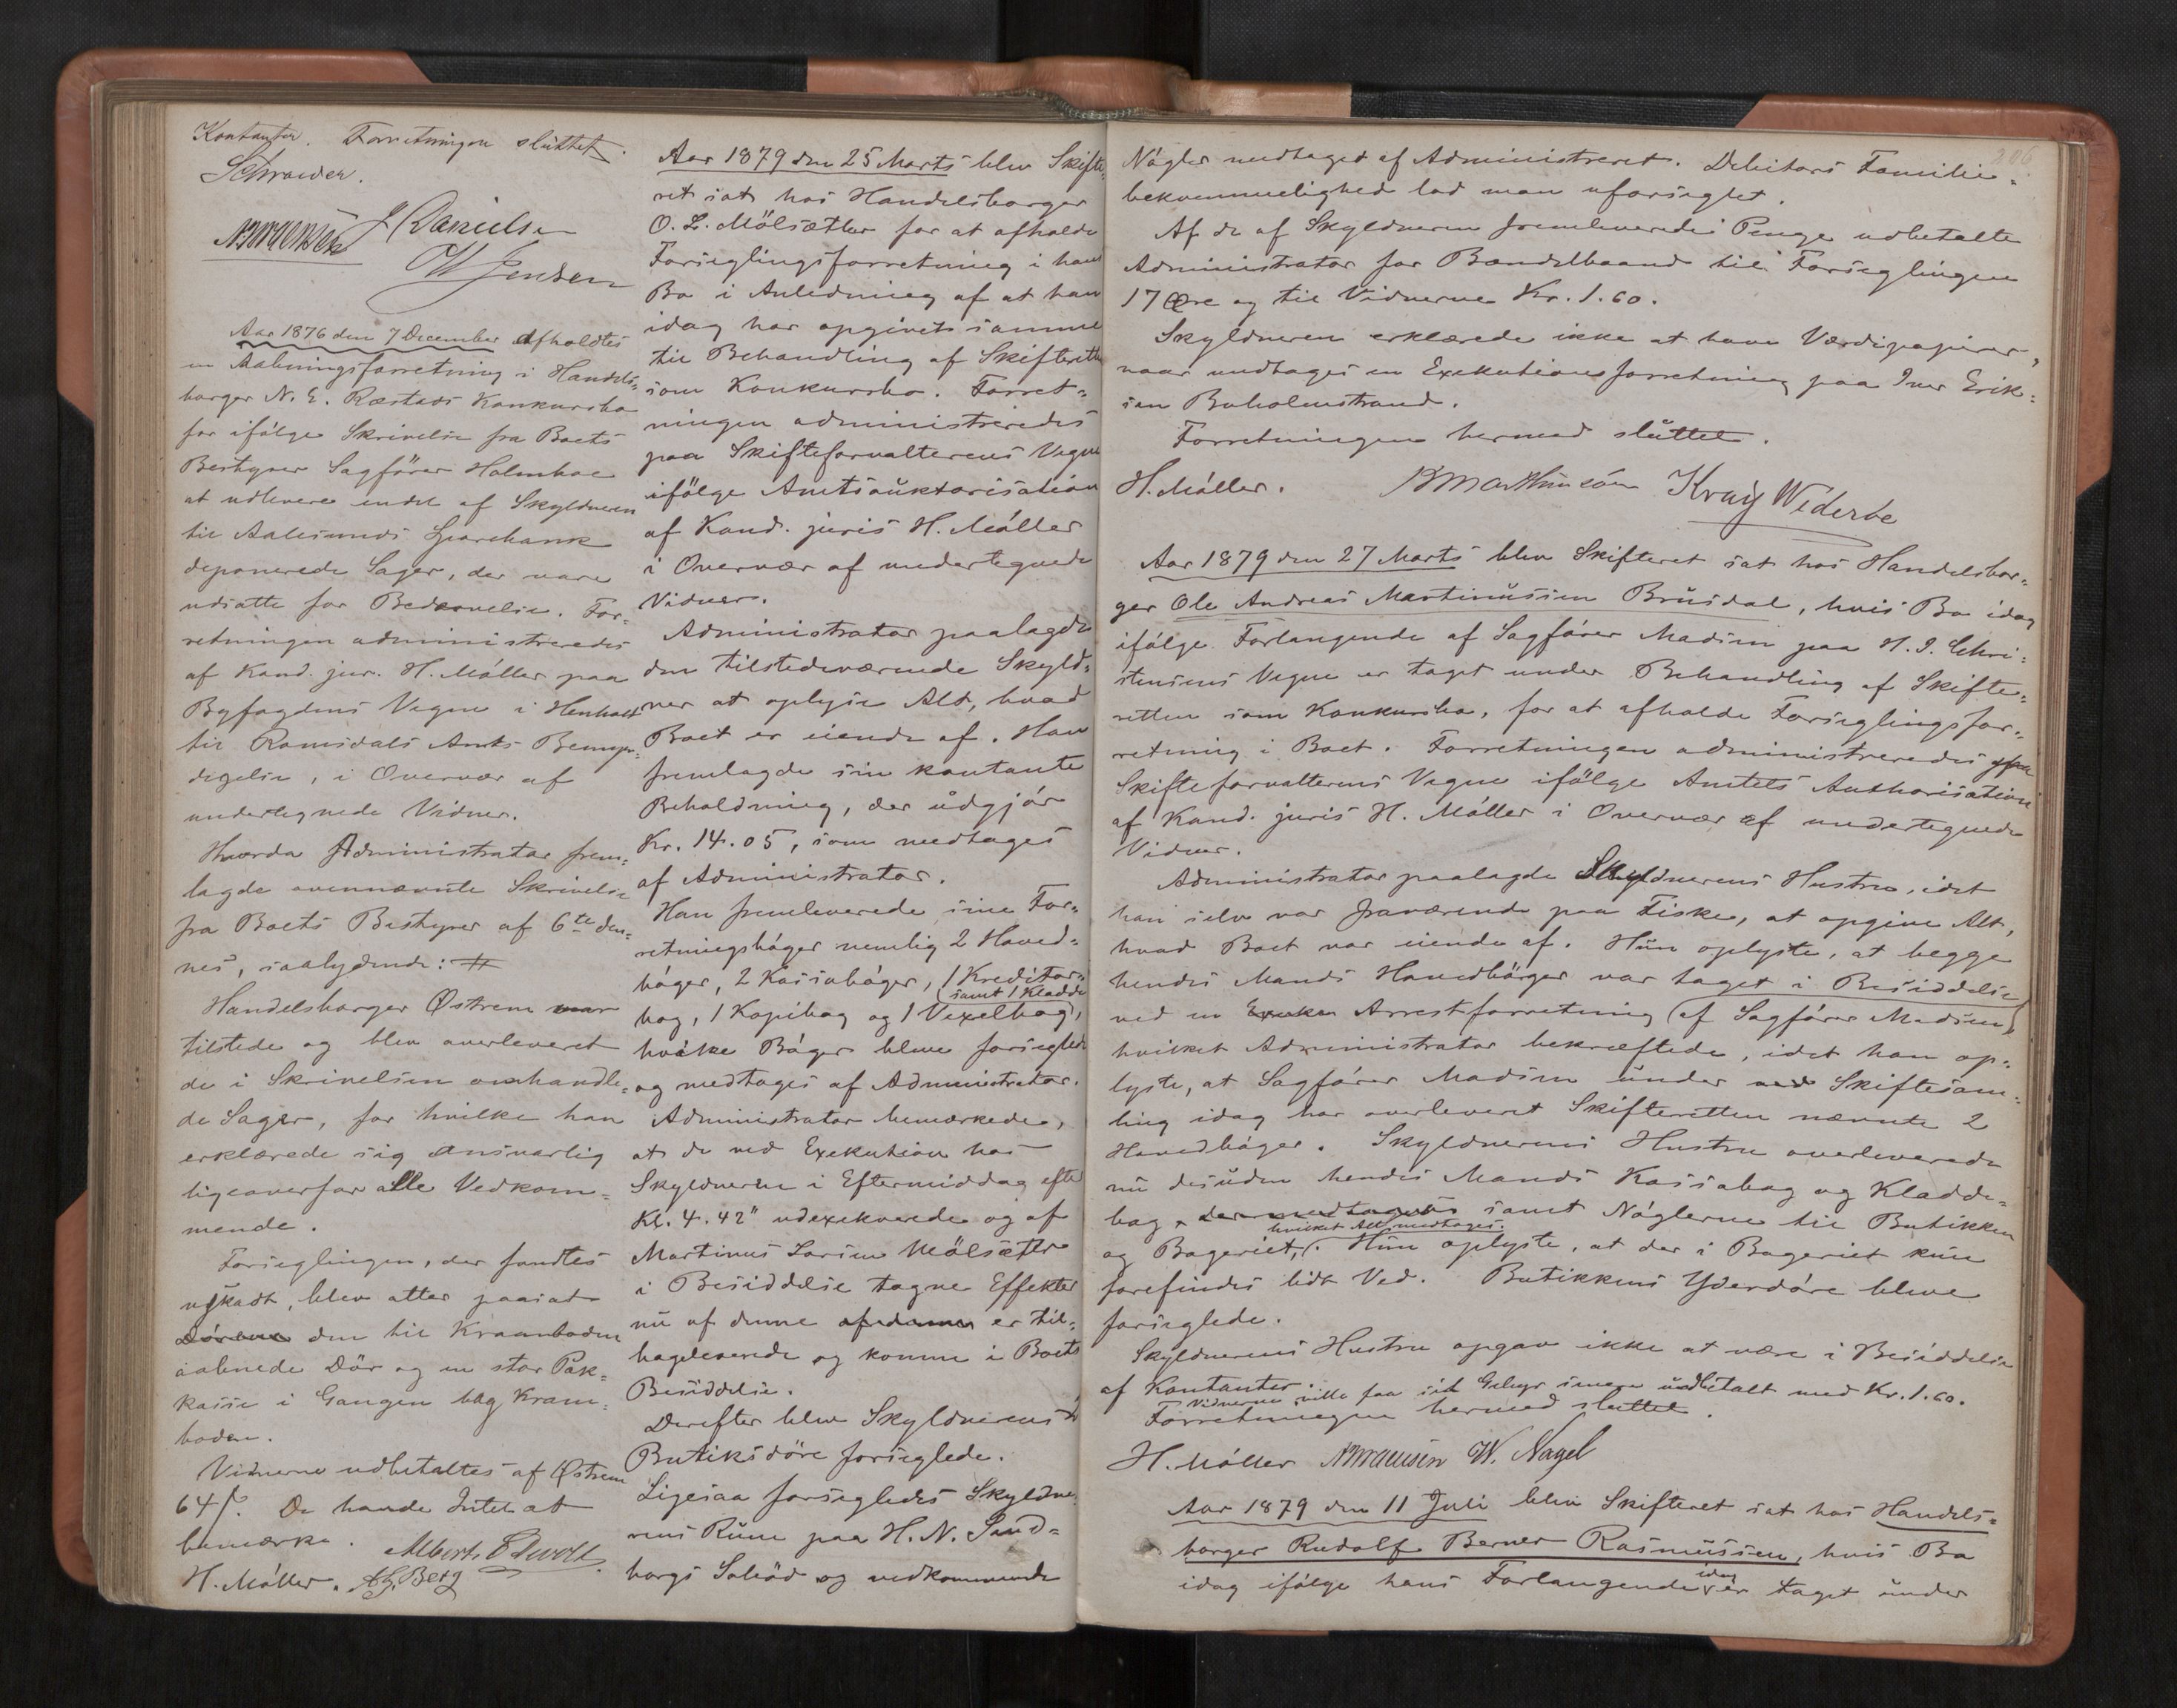 Kontanter. Forretningen sluttet.
Schrøder.
J Danielsen
W Jensen
Aar 1876 den 7 December afholdtes
en Aabningsforretning i Handels-
borger N. E. Røstads Konkursbo
for ifølge Skrivelse fra Boets
Bestyrer Sagfører Holmboe
at udlevere endel af Skyldneren
til Aalesunds Sparebank
deponerede Sager, der vare
udsatte for Bedærvelse. For-
retningen administreredes
af Kand. jur. H. Møller paa
Byfogdens Vegne i Henhold
til Romsdals Amts Bemyn-
digelse, i Overvær af
undertegnede Vidner.
Hvorda Administrator frem-
lagde ovennævnte Skrivelse
fra Boets Bestyrer af 6te den-
nes, saalydende: #
Handelsborger Østrem var
tilstede og blev overleveret
de i Skrivelsen omhandle-
de Sager, for hvilke han
erklærede sig ansvarlig
ligeoverfor alle Vedkom-
mende.
Forseglingen, der fandtes
uskadt, blev atter paasat
Dørene den til Kramboden
aabnede Dør og en stor Pak-
kasse i Gangen bag Kram-
boden.
Vidnerne udbetaltes af Østrem
64 ß. De havde Intet at
bemærke.
H. Møller. A.G. Berg
Aar 1879 den 25 Marts blev Skifte-
ret sat hos Handelsborger
O. L. Mölsætter for at afholde
Forseglingsforretning i hans
Bo i Anledning af at han
idag har opgivet samme
til Behandling af Skifteretten
som Konkursbo. Forret-
ningen administreredes
paa Skifteforvalterens Vegne
ifölge Amtsauktorisation
af Kand. juris H. Møller
i Overvær af undertegnede
Vidner.
Administrator paalagde
den tilstedeværende Skyld-
ner at oplyse Alt, hvad
Boet er eiende af. Han
fremlagde sin kontante
Beholdning, der udgjör
Kr. 14.05, som medtages
af Administrator.
Han fremleverede sine For-
retningsbøger nemlig 2 Hoved-
bøger, 2 Kassabøger, 1 Kreditor-
bog, 1 Kopibog og 1 Vexelbog, (samt 1 Kladde
hvilke Bøger bleve forseglede
og medtoges af Administrator.
Administrator bemærkede,
at de ved Exekution hos
Skyldneren i Eftermiddag efter
Kl. 4.42" udexekverede og af
Martinus Larsen Mölsætter
i Besiddelse tagne Effekter
nu af denne af denne er til-
bageleverede og komne i Boets
Besiddelse.
Derefter blev Skyldnerens
Butiksdöre forseglede.
Ligesaa forsegledes Skyldne-
rens Rum paa H. N. Sand-
borgs Søbod og vedkommende
206
Nøgler medtaget af Administrator. Debitors Familie-
bekvemmelighed lod man uforseglet.
Af de af Skyldneren fremleverede Penge udbetalte
Administrator for Bændelbaand til Forseglingen
17 Øre og til Vidnerne Kr. 1.60.
Skyldneren erklærede ikke at have Værdipapirer,
naar undtages en Exekutionsforretning paa Iver Erik-
sen Boholmstrand.
Forretningen hermed sluttet.
H. Møller. B Marthinsön Krag Wederbe
Aar 1879 den 27 Marts blev Skifteret sat hos Handelsbor-
ger Ole Andreas Martinussen Brusdal, hvis Bo idag
ifølge Forlangende af Sagfører Madsen paa H. J. Chri-
stensens Vegne er taget under Behandling af Skifte-
retten som Konkursbo, for at afholde Forseglingsfor-
retning i Boet. Forretningen administreredes paa
Skifteforvalterens Vegne ifølge Amtets Authorisation
af Kand. juris H. Møller i Overvær af undertegnede
Vidner.
Administrator paalagde Skyldnerens Hustru, idet
han selv var fraværende paa Fiske, at opgive Alt,
hvad Boet var eiende af. Hun oplyste, at begge
hendes Mands Hovedbøger var taget i Besiddelse
ved en Exeku Arrestforretning (af Sagfører Madsen)
hvilket Administrator bekræftede, idet han op-
lyste, at Sagfører Madsen under ved Skiftesam-
ling idag har overleveret Skifteretten nævnte 2
Hovedbøger. Skyldnerens Hustru overleverede
nu desuden hendes Mands Kassabog og Kladde-
bog, der medtoges samt Nøglerne til Butikken
og Bageriet, hvilket Alt medtages. Hun oplyste, at der i Bageriet kun
forefindes lidt Ved. Butikkens Yderdøre bleve
forseglede.
Skyldnerens Hustru opgav ikke at være i Besiddelse
af Kontanter. Vidnerne ville faa sit Gebyr senere udbetalt med Kr. 1.60.
Forretningen hermed sluttet.
H. Møller W. Nagel
Aar 1879 den 11 Juli blev Skifteret sat hos Handels-
borger Rudolf Berner Rasmussen, hvis Bo
idag ifølge hans Forlangende idag er taget under